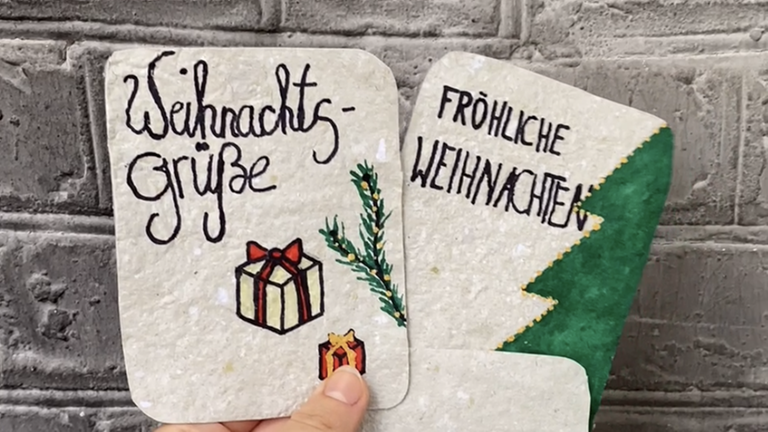 Weihnachts-
grüße
FRÖHLICHE
WEIHNACHTEN